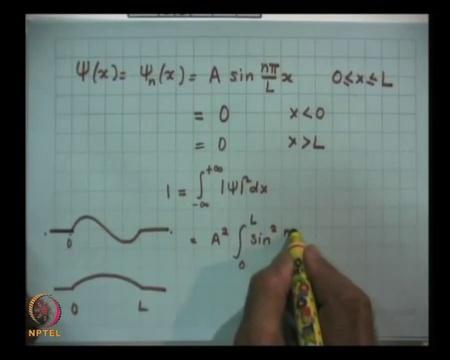 Ψ(x) = Ψn(x) = A sin nπ/L x   0≤x≤L
= 0   x<0
= 0   x>L
1 = ∫_{-∞}^{+∞} |Ψ|² dx
= A² ∫_0^L sin²
0
0   L
NPTEL